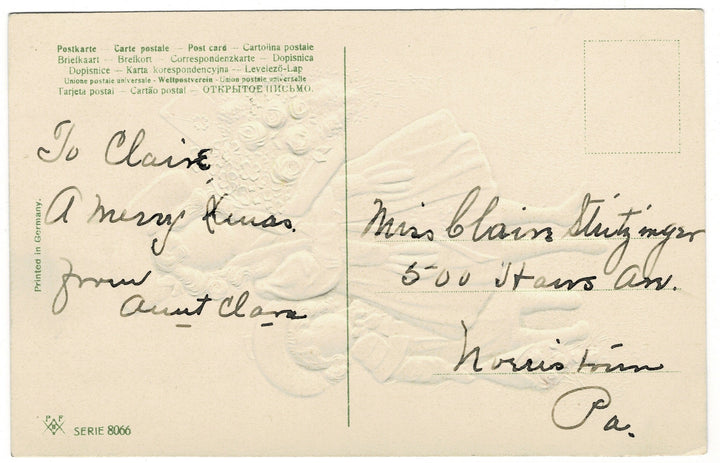 Postkarte – Carte postale – Post card – Cartolina postale
Briefkaart – Brefkort – Correspondenzkarte – Dopisnica
Dopisnice – Karta korespondencyjna – Levelező-Lap
Unione postale universale - Weltpostverein - Union postale universelle
Tarjeta postal – Cartão postal – ОТКРЫТОЕ ПИСЬМО.
To Claire
A Merry Xmas.
from
Aunt Clara
Printed in Germany.
P F
SERIE 8066
Miss Claire Stritzinger
500 Haws Av.
Norristown
Pa.